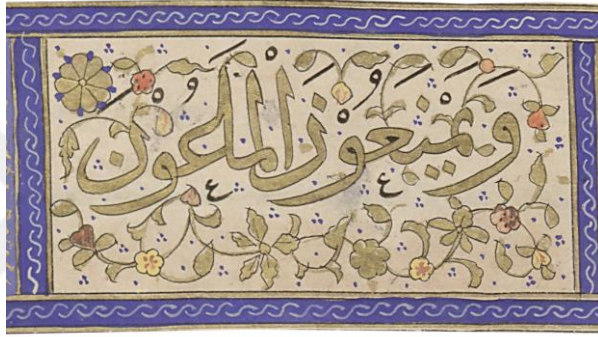 وَيَمْنَعُوْنَ الْمَاعُوْنَ